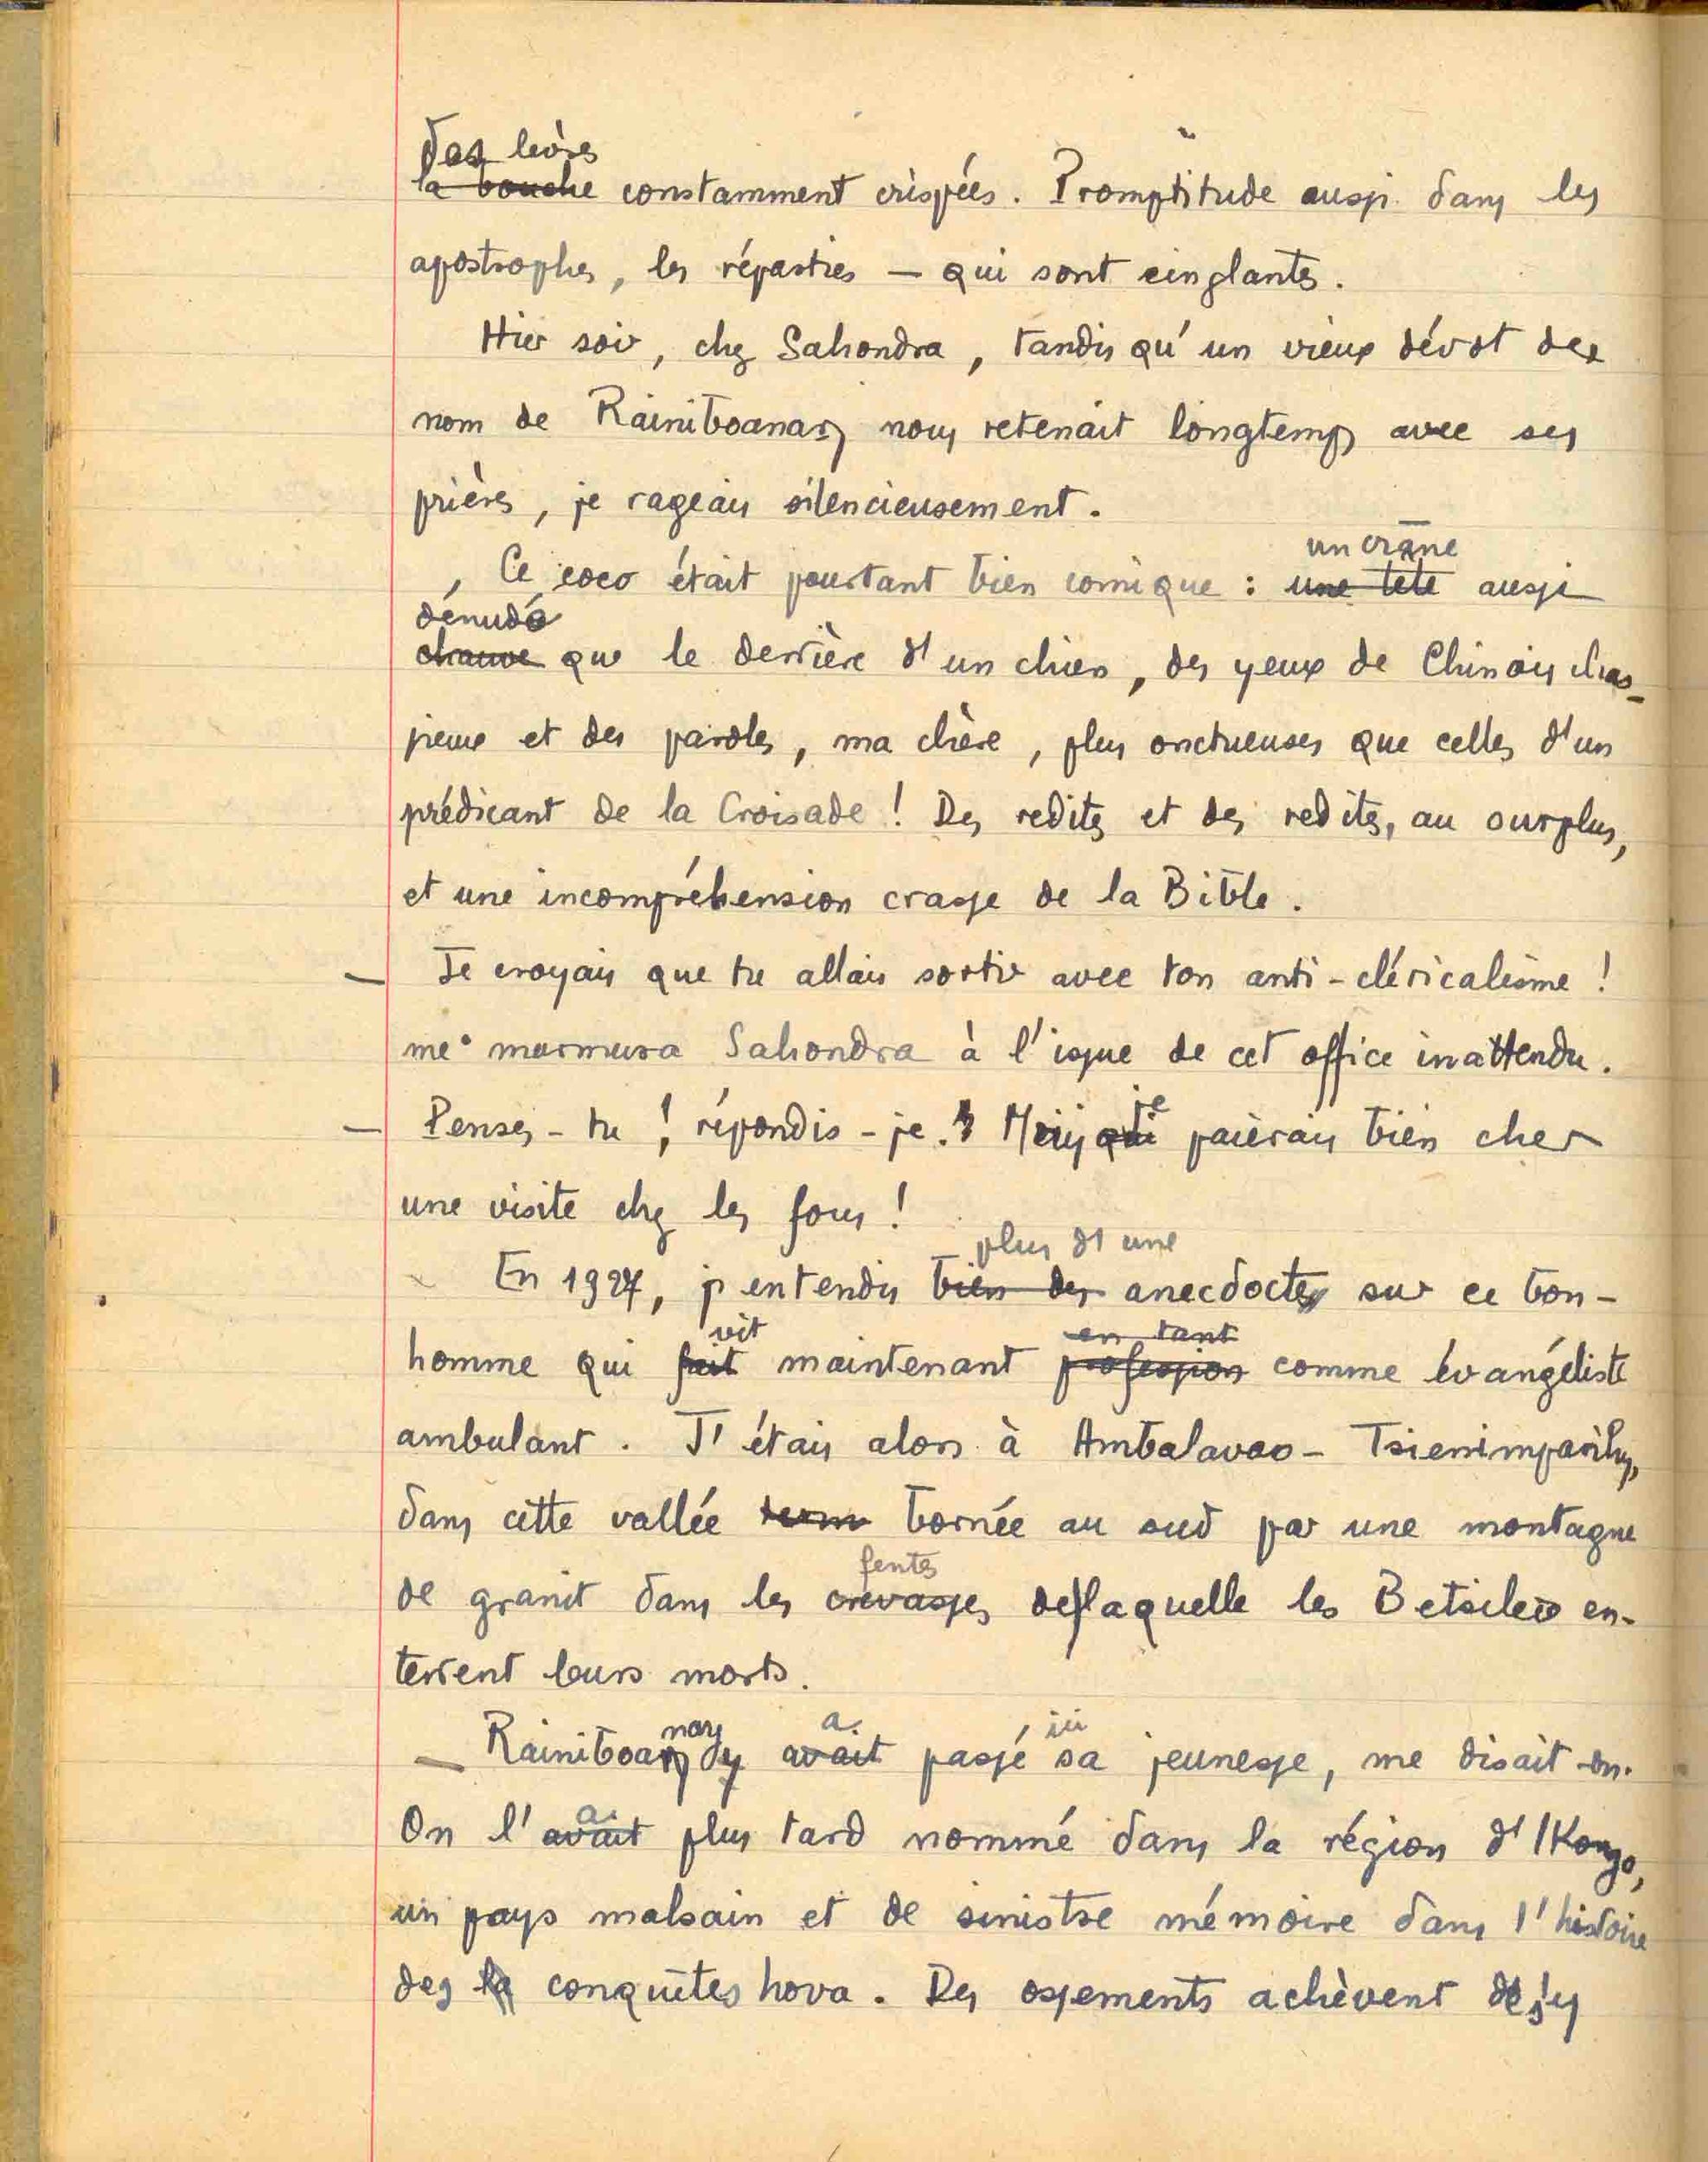 des lèvres
la bouche constamment crispées. Promptitude aussi dans les
apostrophes, les réparties — qui sont cinglantes.
Hier soir, chez Sahondra, tandis qu'un vieux dévot du
nom de Rainiboanary nous retenait longtemps avec ses
prières, je rageais silencieusement.
un crâne
Ce coco était pourtant bien comique : une tête aussi
dénudé
chauve que le derrière d'un chien, des yeux de Chinois chas-
sieux et des paroles, ma chère, plus onctueuses que celles d'un
prédicant de la Croisade ! Des redites et des redites, au surplus,
et une incompréhension crasse de la Bible.
— Je croyais que tu allais sortir avec ton anti-cléricalisme !
me murmura Sahondra à l'issue de cet office inattendu.
je
— Penses-tu ! répondis-je. Mais qui paierais bien cher
une visite chez les fous !
plus d'une
En 1927, j'entendis bien des anecdoctes sur ce bon-
vit en tant
homme qui fait maintenant profession comme évangéliste
ambulant. J'étais alors à Ambalavao-Tsienimparihy,
dans cette vallée bornée au sud par une montagne
fentes
de granit dans les crevasses de laquelle les Betsileo en-
terrent leurs morts.
nary a ici
— Rainiboan y avait passé sa jeunesse, me disait-on.
a
On l'avait plus tard nommé dans la région d'Ikongo,
un pays malsain et de sinistre mémoire dans l'histoire
des conquêtes hova. Des ossements achèvent de s'y